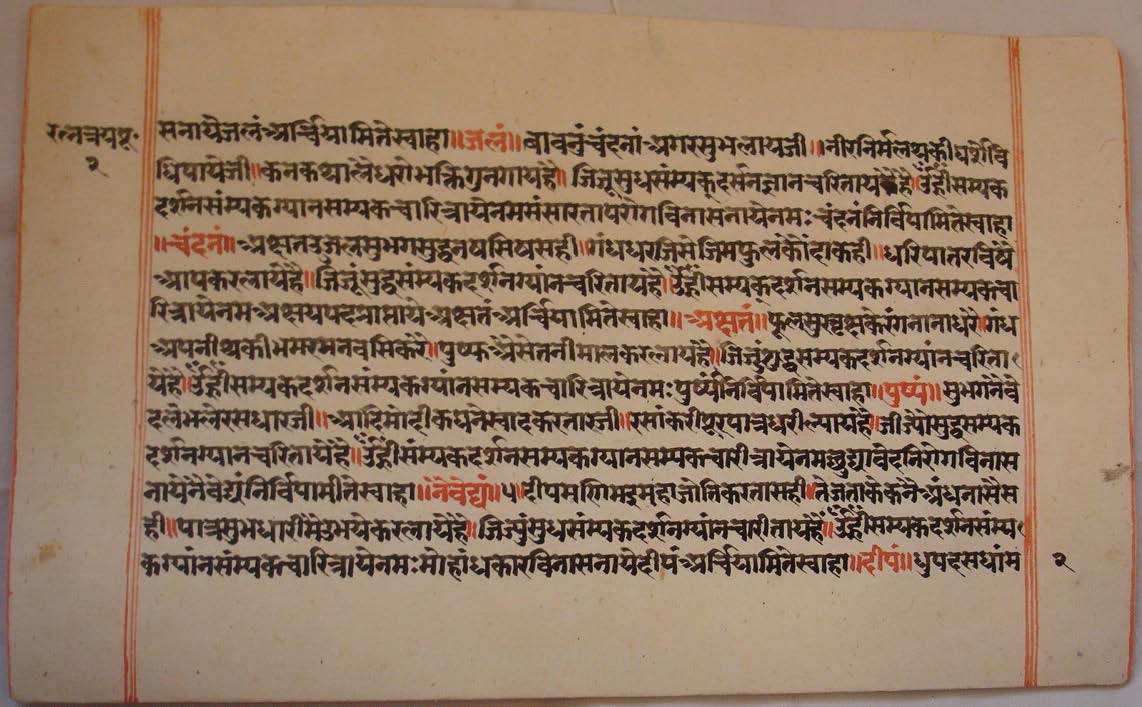 रत्नत्रयपू॰
२
सनायेजलंअर्चियामितेस्वाहा॥जलं॥बावनंचंदनांअगरसुभलायजी॥नीरनिर्मलथकीधशेवि
धिपायेजी॥कनकथालेधरोभक्तिगुनगायहै॥जिजूसुधसंम्यकदर्सनज्ञानचरितायहै॥उंह्रींसम्यक
दर्शनसंम्यकग्यानसम्यकचारित्रायेनमसंसारतापरोगविनासनायेनमः चंदनंनिर्विपामितेस्वाहा
॥चंदनं॥अक्षतउजलसुभगसुद्धनषसिषसही॥गंधधरजिसेजिमफुलकोंदाकही॥धरिपातरविषे
आपकरलायहै॥जिजूंसुद्धसंम्यकदर्शनग्यांनचरितायहै॥उंह्रींसम्यकदर्शनसम्यकग्यानसम्यकचा
रित्रायेनमअक्षयपदप्राप्तायेअक्षतंअर्चियामितेस्वाहा॥अक्षतं॥फूलसुरवृक्षकेरंगनानाधरे॥गंध
अपनीथकीभमरमनवसिकरे॥पुष्फअैसेतनीमालकरलायहै॥जिजुंशुद्धसम्यकदर्शनग्यांनचरिता
यहै॥उंह्रींसम्यकदर्शनसंम्यकग्यांनसम्यकचारित्रायेनमः पुष्पंनिर्विपामितेस्वाहा॥पुष्पं॥सुभगनेवे
दलेभलेरसधारजी॥आदिमोदीकघनेस्वादकरतारजी॥रसांकरीपूरपात्रधरील्यायहै॥जीज्योसुद्धसम्यक
दर्शनग्यानचरितायहै॥उंह्रींसंम्यकदर्शनसम्यकग्यानसम्यकचारीत्रायेनमक्षुद्यावेदनिरोगविनास
नायेनैवेद्यंनिर्विपामीतेस्वाहा॥नैवेद्यं॥५॥दीपमणिमइमहाजोतिकरतासही॥तेजताकेकनैअंधनासैस
ही॥पात्रसुभधारीमेउभयेकरलायहै॥जिज्युंसुधसंम्यकदर्शनग्यांनचारीतायहै॥उंह्रींसम्यकदर्शनसंम्य
कग्यांनसंम्यकचारित्रायेनमः मोहांधकारविनासनायेदीपंअर्चियामितेस्वाहा॥दीपं॥धुपदसधांम
२